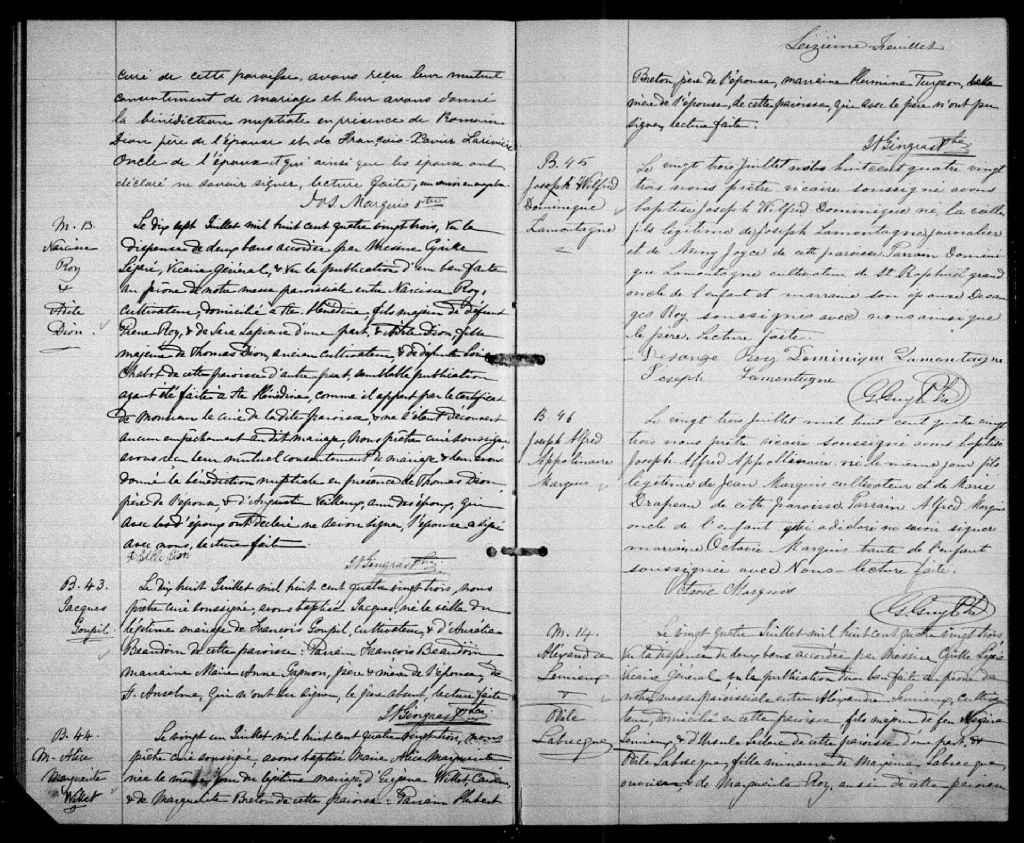 curé de cette paroisse, avons reçu leur mutuel
consentement de mariage et leur avons donné
la bénédiction nuptiale en présence de Romain
Dion père de l'épouse et de François-Xavier Larivière
Oncle de l'époux et qui ainsi que les époux ont
déclaré ne savoir signer, lecture faite,
Marquis ptre
M. 13
Narcisse
Roy
&
Adèle
Dion
Le dix sept Juillet mil huit cent quatre vingt trois, vu la
dispense de deux bans accordée par Messire Cyrille
Légaré, Vicaire Général, & vu la publication d'un ban faite
au prône de notre messe paroissiale entre Narcisse Roy,
Cultivateur, domicilié à Ste. Hénédine, fils majeur de défunt
Pierre Roy, & de Lapierre d'une part, & Adèle Dion, fille
majeure de Thomas Dion, ancien cultivateur, & de défunte
Chabot de cette paroisse d'autre part, semblable publication
ayant été faite à Ste Hénédine, comme il appert par le certificat
de Monsieur le curé de la dite paroisse, & ne s'étant découvert
aucun empêchement au dit mariage, Nous prêtre curé soussigné
avons reçu leur mutuel consentement de mariage & leur avons
donné la bénédiction nuptiale en présence de Thomas Dion
père de l'épouse, & d'Augustin ami des époux, qui
avec l'époux ont déclaré ne savoir signer, l'épouse a signé
avec nous, lecture faite.
Adèle Dion
Gingras Ptre
B. 43.
Jacques
Goupil.
Le dix huit Juillet mil huit cent quatre vingt trois, nous
prêtre curé soussigné, avons baptisé Jacques, né la veille du
légitime mariage de François Goupil, cultivateur, & d'Aurélie
Beaudoin de cette paroisse: Parrain François Beaudoin
marraine Marie Anne Gagnon, père & mère de l'épouse, de
St. Anselme, qui n'ont su signer, le père absent, lecture faite
Gingras Ptre
B. 44.
M. Alice
Marguerite
Willet
Le vingt un Juillet mil huit cent quatre vingt trois, nous
prêtre curé soussigné, avons baptisé Marie Alice Marguerite
née le même jour du légitime mariage d'Eugène Willet
& de Marguerite Breton de cette paroisse: Parrain
Seizième Feuillet
Breton, père de l'épouse, marraine Hermine Turgeon, belle
mère de l'épouse, de cette paroisse, qui avec le père n'ont pu
signer, lecture faite.
Gingras Ptre
B. 45
Joseph Wilfrid
Dominique
Lamontagne
Le vingt trois Juillet mil huit cent quatre vingt
trois nous prêtre vicaire soussigné avons
baptisé Joseph Wilfrid Dominique né la veille
fils légitime de Joseph Lamontagne journalier
et de Anny Joyce de cette paroisse Parrain Domini
que Lamontagne cultivateur de St Raphaël grand
oncle de l'enfant et marraine son épouse Desan
ges Roy soussignés avec nous ainsi que
le père. Lecture faite.
Desange Roy Dominique Lamontagne
Joseph Lamontagne
G. Guy Ptre
B 46
Joseph Alfred
Appolinaire
Marquis
Le vingt trois Juillet mil huit cent quatre vingt
trois nous prêtre vicaire soussigné avons baptisé
Joseph Alfred Appollinaire né le même jour fils
légitime de Jean Marquis cultivateur et de Marie
Drapeau de cette paroisse Parrain Alfred Marquis
oncle de l'enfant qui a déclaré ne savoir signer
marraine Octavie Marquis tante de l'enfant
soussignée avec Nous. lecture faite.
Octavie Marquis
G. Guy Ptre
M. 14.
Alexandre
Lemieux
&
Odile
Labrecque
Le vingt quatre Juillet mil huit cent quatre vingt trois
vu la dispense de deux bans accordée par Messire Cyrille Légaré
vicaire général vu la publication d'un ban faite au prône de
notre messe paroissiale entre Alexandre Lemieux, cultiva
teur, domicilié en cette paroisse, fils majeur de feu
Lemieux & d'Ursule Leclerc de cette paroisse d'une part, &
Odile Labrecque, fille mineure de Magloire Labrecque,
ouvrier, & de Marguerite Roy, aussi de cette paroisse